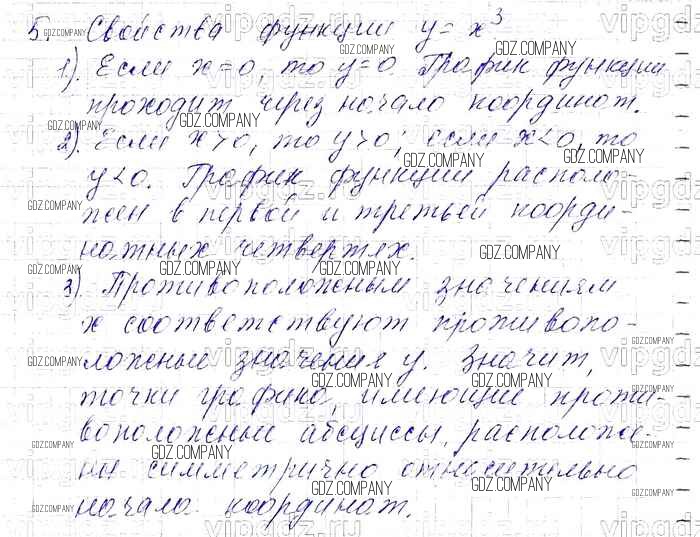 5. Свойства функции y = x³
1). Если x=0, то y=0. График функции
проходит через начало координат.
2). Если x>0, то y>0; если x<0, то
y<0. График функции располо-
жен в первой и третьей коорди-
натных четвертях.
3). Противоположным значениям
x соответствуют противопо-
ложные значения y. Значит,
точки графика, имеющие проти-
воположные абсциссы, расположе-
ны симметрично относительно
начала координат.